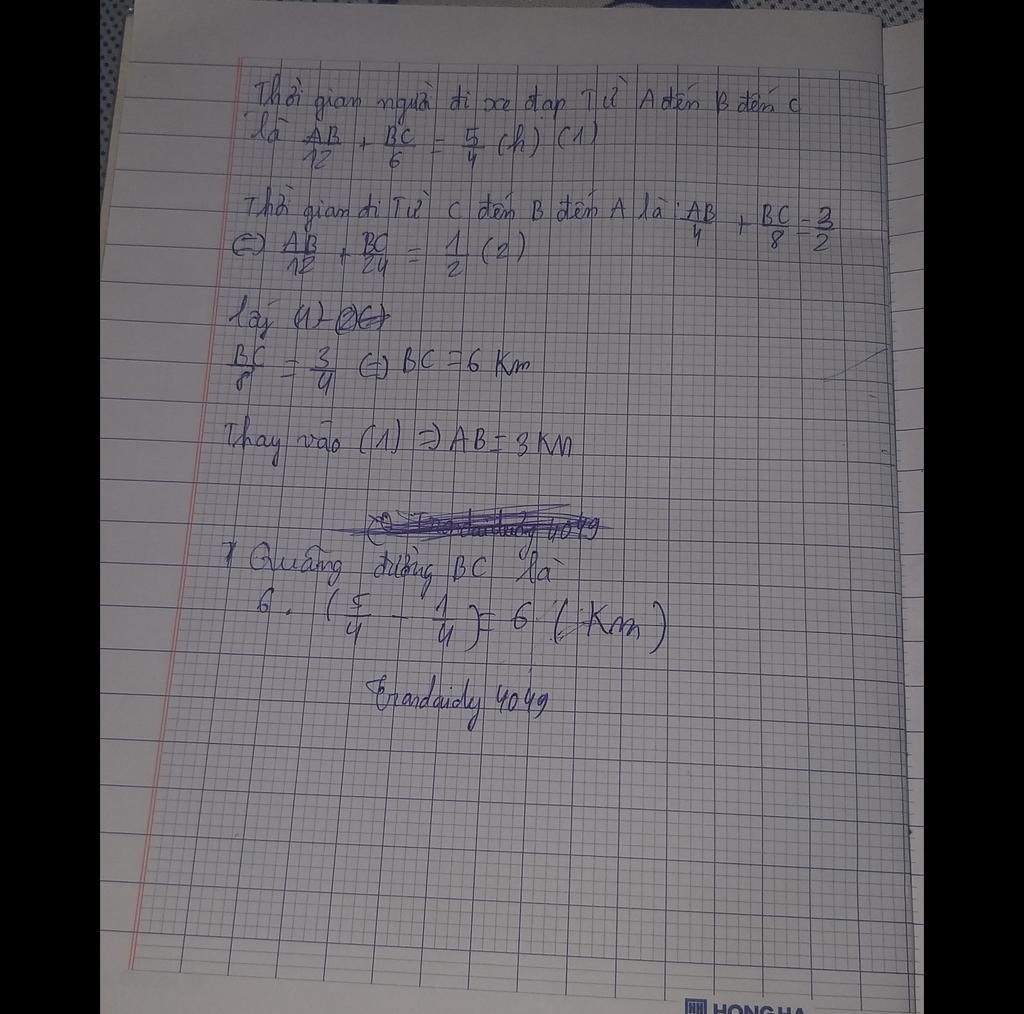 Thời gian người đi xe đạp Từ A đến B đến C
là AB/12 + BC/6 = 5/4 (h) (1)
Thời gian đi Từ C đến B đến A là: AB/4 + BC/8 = 3/2
⇔ AB/12 + BC/24 = 1/2 (2)
lấy (1)-(2)
BC/8 = 3/4 ⇔ BC = 6 Km
Thay vào (1) ⇒ AB = 3 KM
Quãng đường BC là
6. (5/4 - 1/4) = 6 (Km)
Trandaidy 4049
HONG HA